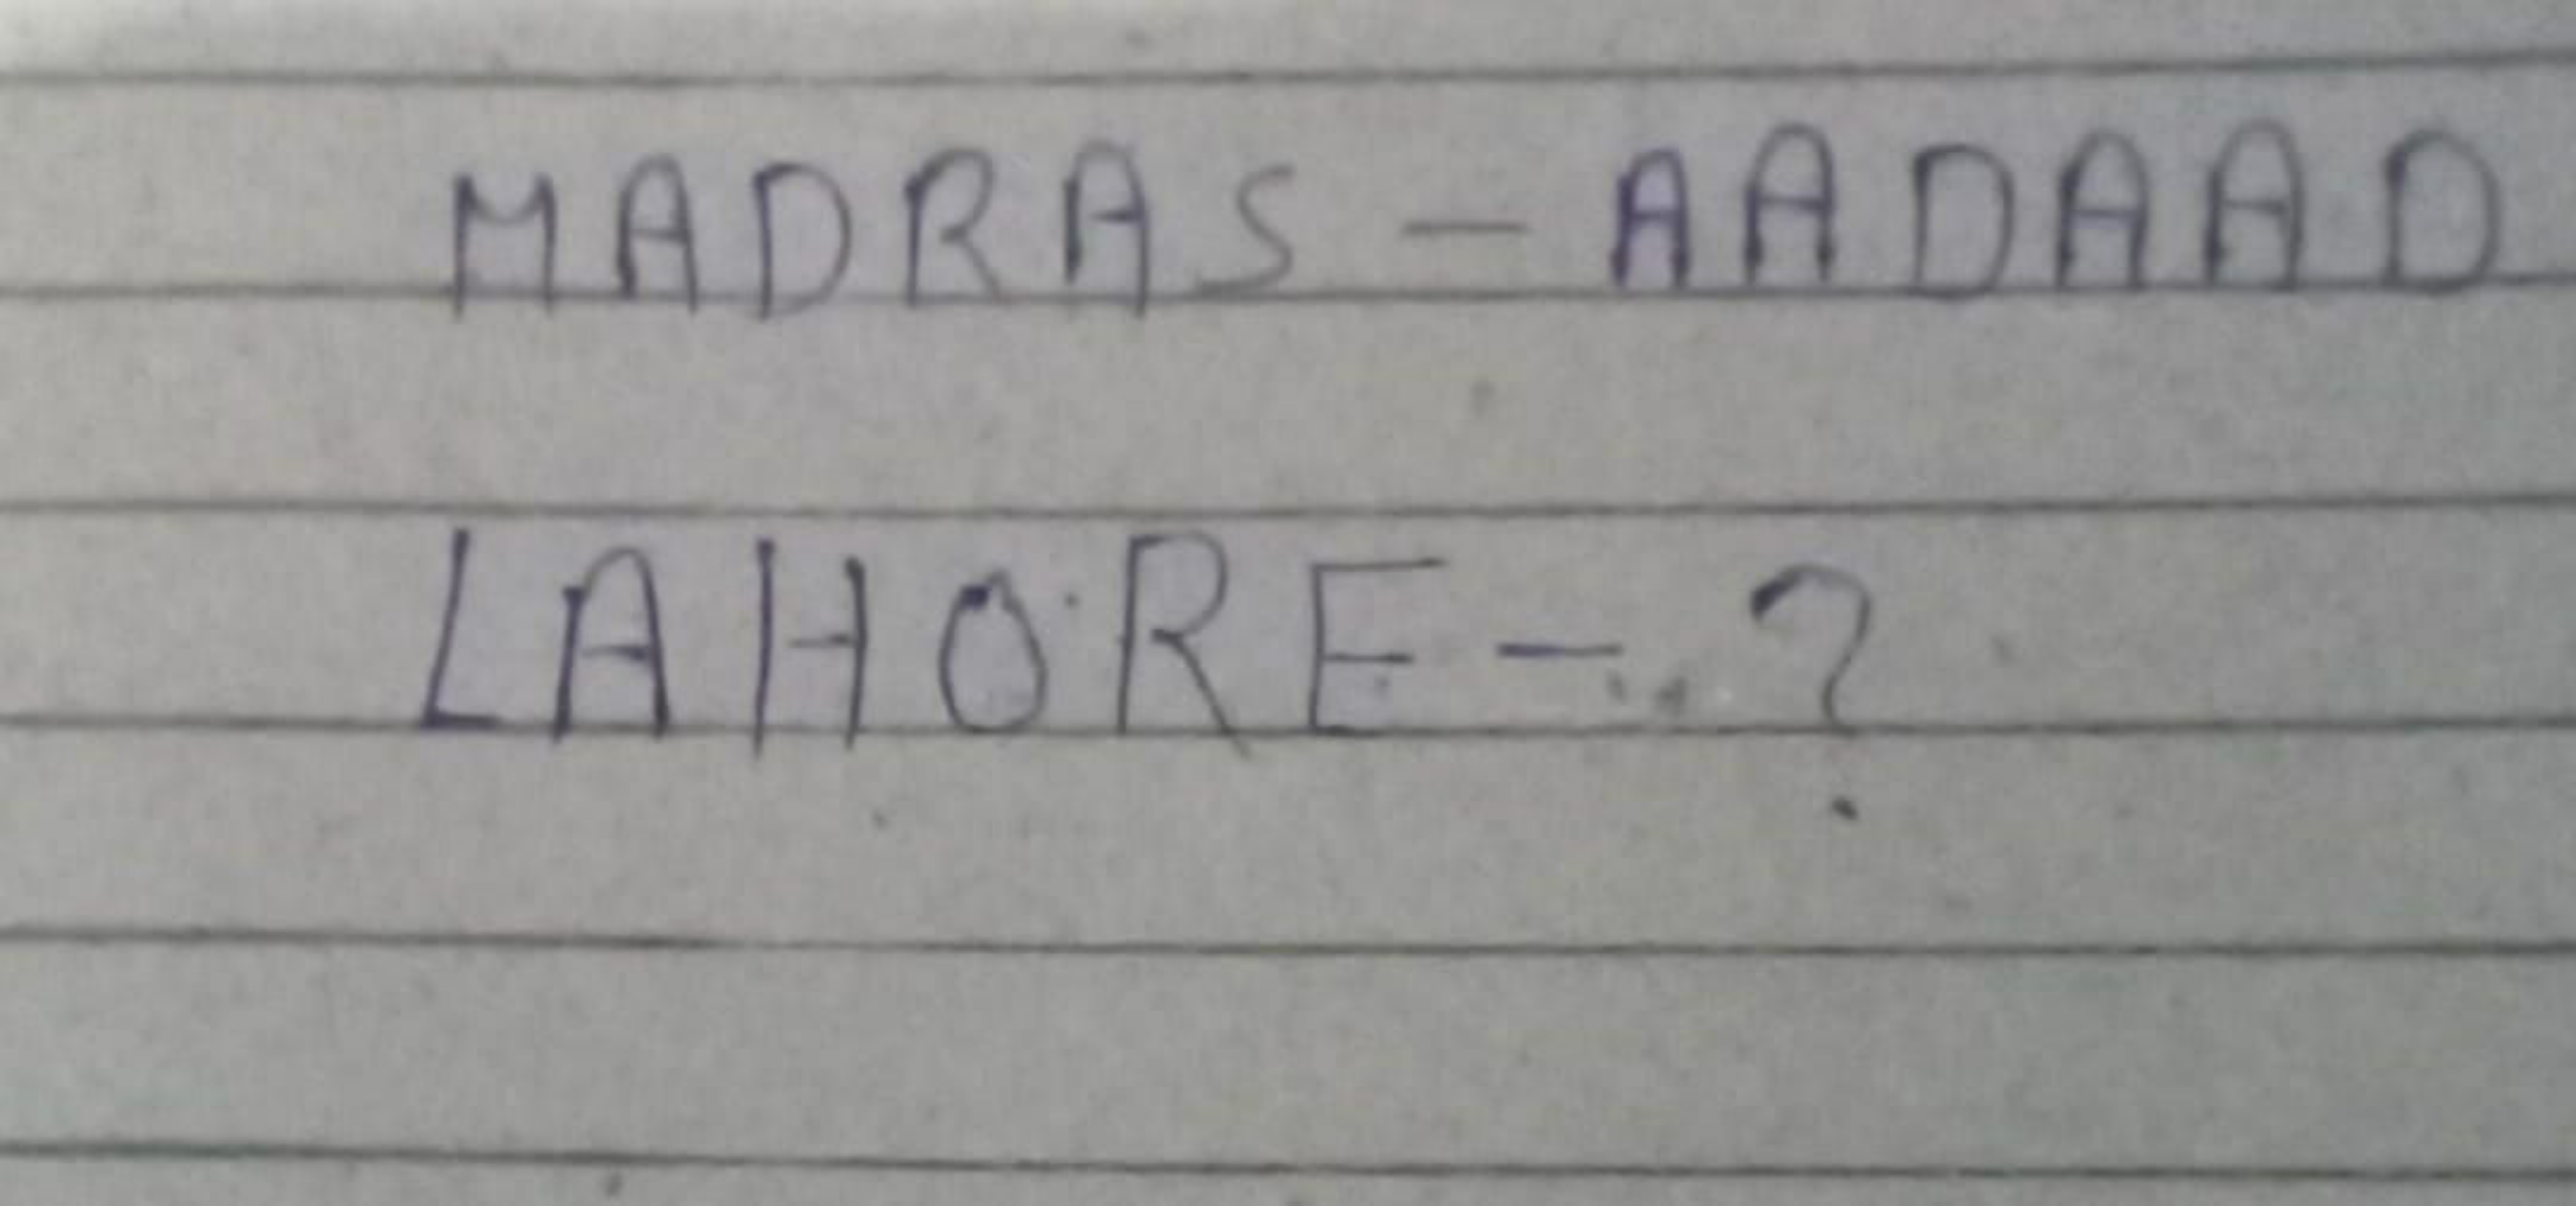 MADRAS - AADAAD
LAHORE - ?